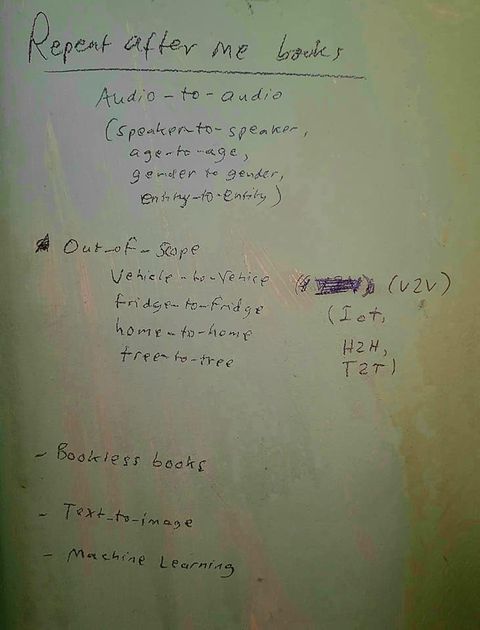 Repeat after me books
Audio-to-audio
(speaker-to-speaker,
age-to-age,
gender to gender,
entity-to-entity)
Out-of-scope
Vehicle-to-vehice (V2V)
fridge-to-fridge (Iot,
home-to-home H2H,
tree-to-tree T2T)
- Bookless books
- Text-to-image
- Machine Learning